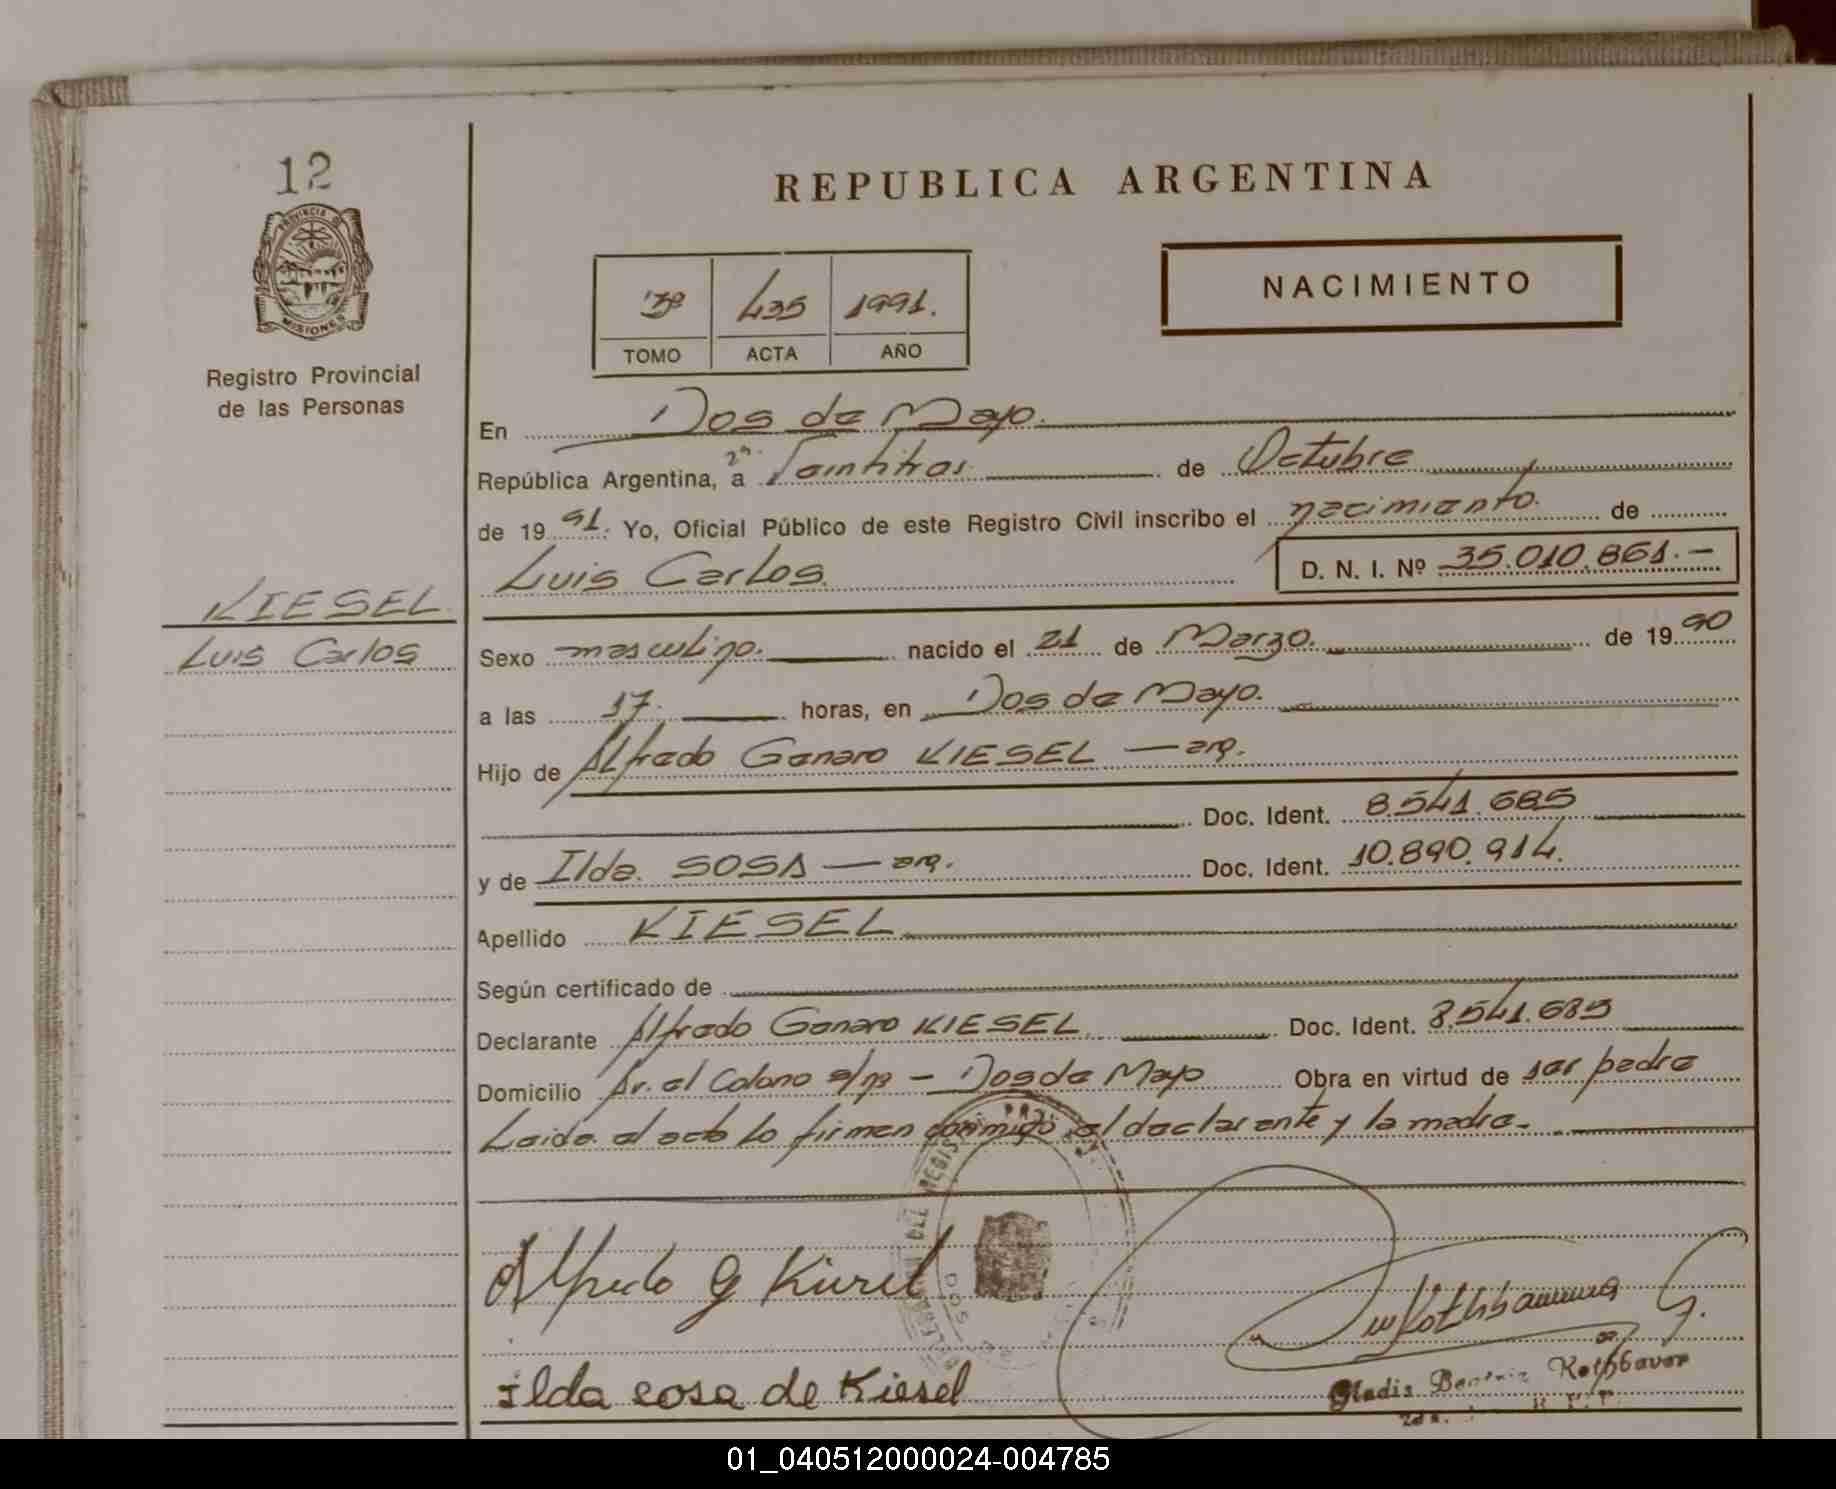 12
PROVINCIA DE
MISIONES
Registro Provincial
de las Personas
KIESEL
Luis Carlos
REPUBLICA ARGENTINA
435 1991.
TOMO ACTA AÑO
NACIMIENTO
En Dos de Mayo.
República Argentina, a Veintitres de Octubre
de 19 91. Yo, Oficial Público de este Registro Civil inscribo el nacimiento. de
Luis Carlos. D. N. I. Nº 35.010.861.-
Sexo masculino. nacido el 21 de Marzo. de 19 90
a las 17. horas, en Dos de Mayo.
Hijo de Alfredo Genaro KIESEL — arg.
Doc. Ident. 8.541.685
y de Ilda. SOSA — arg. Doc. Ident. 10.890.914.
Apellido KIESEL
Según certificado de
Declarante Alfredo Genaro KIESEL. Doc. Ident. 8.541.685
Domicilio Av. el Colono s/nº - Dos de Mayo Obra en virtud de ser padre
Leida el acta lo firman conmigo el declarante y la madre.
Alfredo G Kiesel
Ilda sosa de Kiesel
Gladis Rothbauer
01_040512000024-004785